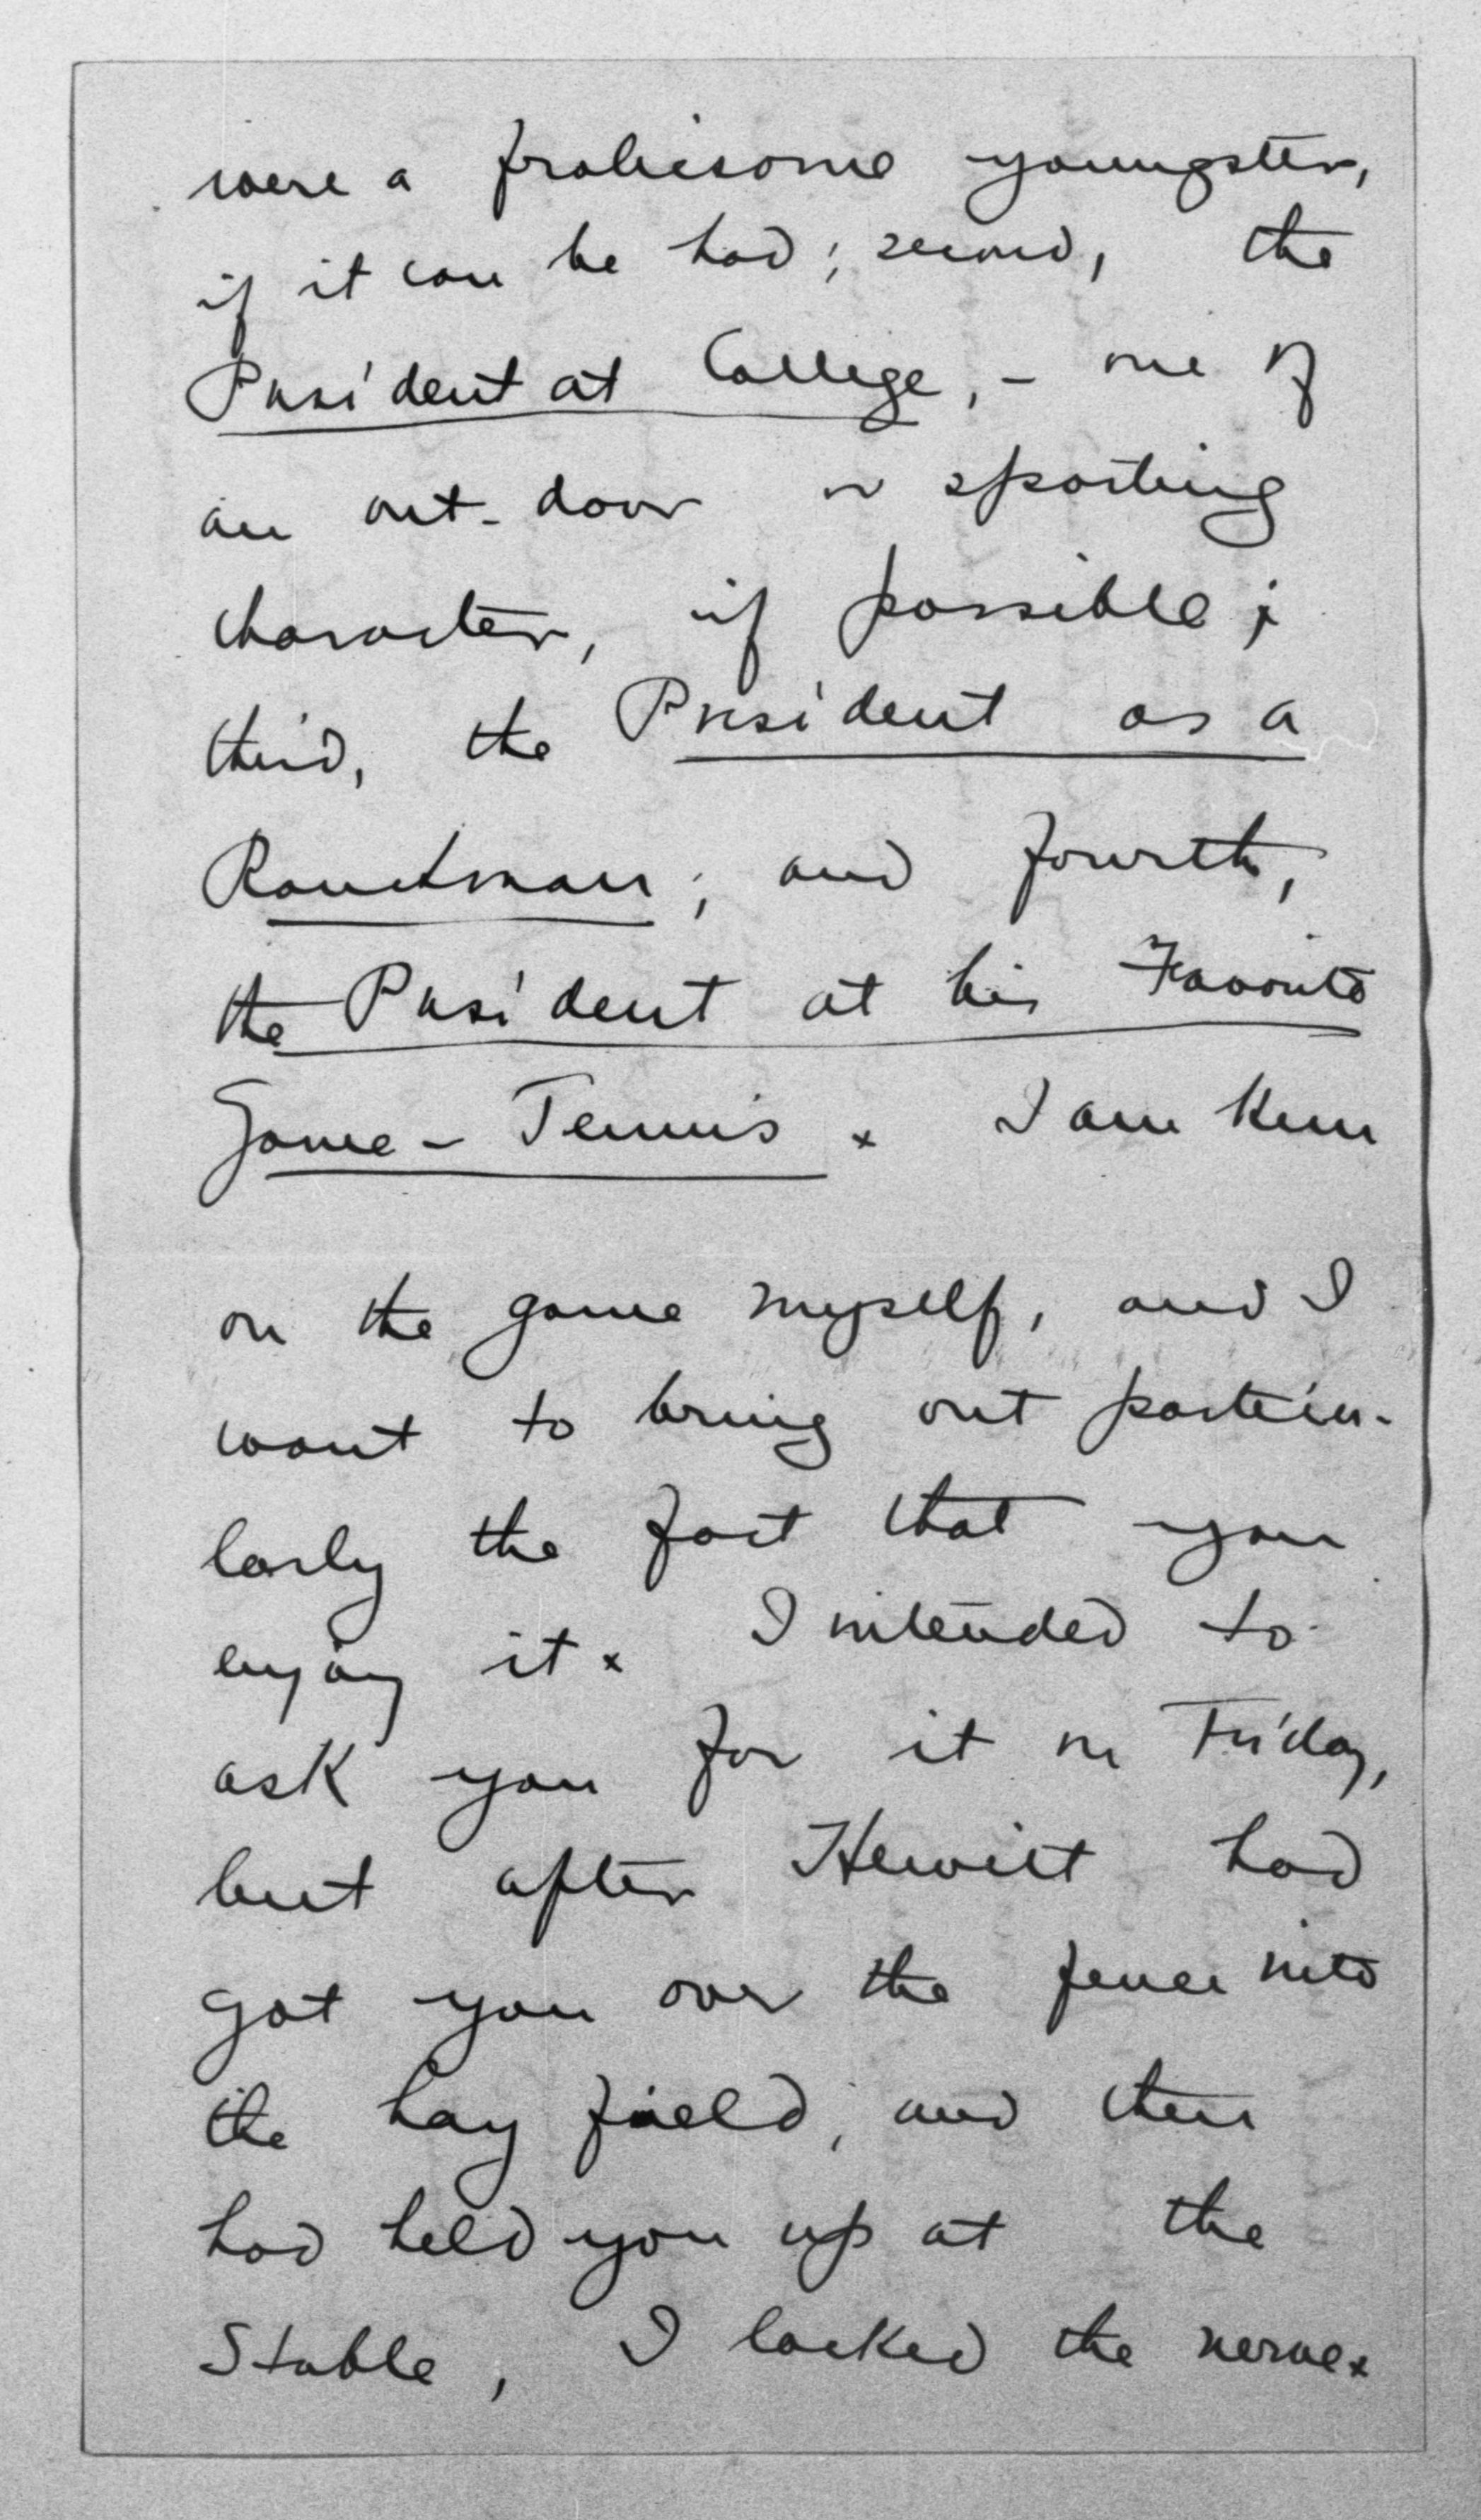 were a frolicsome youngster,
if it can be had; second, the
President at College, - one of
an out-door or sporting
character, if possible;
third, the President as a
Ranchman; and fourth,
the President at his Favorite
Game - Tennis x I am keen
on the game myself, and I
want to bring out particu-
larly the fact that you
enjoy it x I intended to
ask you for it on Friday,
but after Hewitt had
got you over the fence into
the hay field, and then
had held you up at the
Stable, I lacked the nerve x